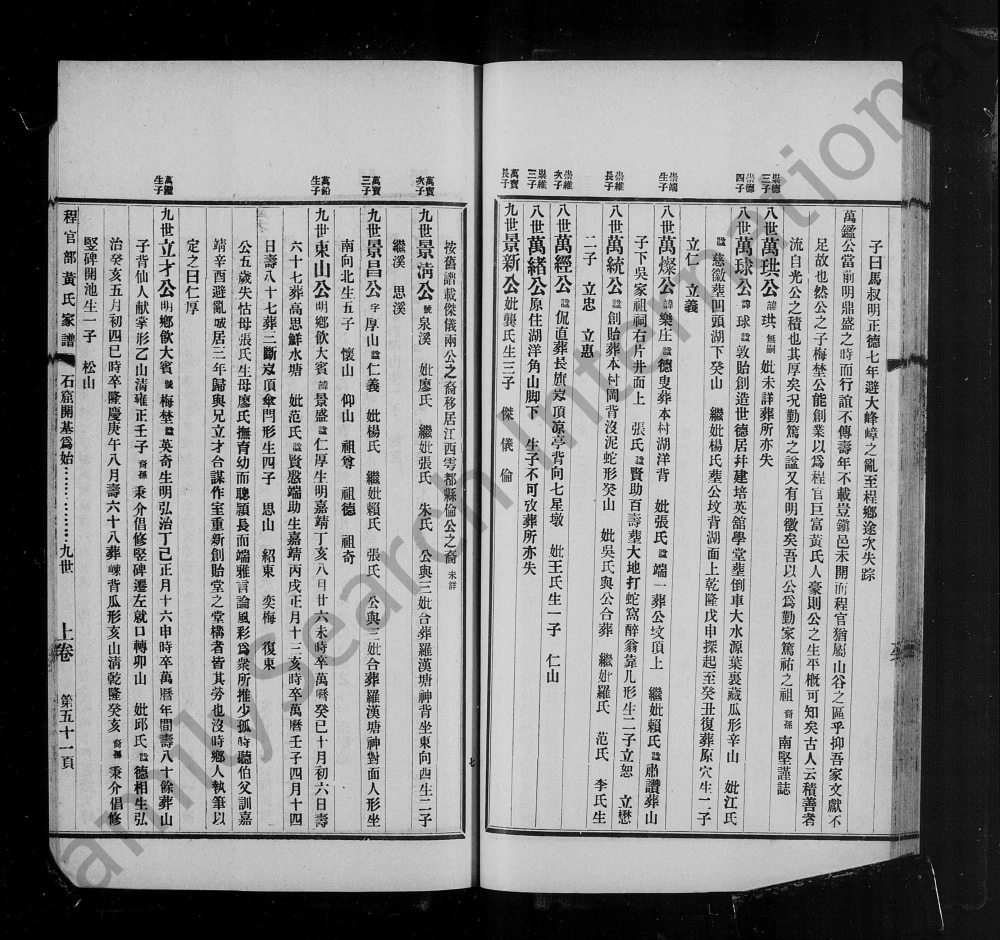 子曰馬叔明正德七年避大峰嶂之亂至程鄉途次失踪
萬鑑公當前明鼎盛之時而行誼不傳壽年不載豈鎭邑未開而程官猶屬山谷之區乎抑吾家文獻不
足故也然公之子梅埜公能創業以爲程官巨富黃氏人豪則公之生平槪可知矣古人云積善者
流自光公之積也其厚矣况勤篤之諡又有明徵矣吾以公爲勤家篤祐之祖 裔孫 南堅謹誌
崇德三子
八世萬珙公 諱珙 無嗣 妣未詳葬所亦失
崇德四子
八世萬球公 諱球 諡敦貽創造世德居幷建培英舘學堂塟倒車大水源葉裏藏瓜形辛山 妣江氏
諡慈徽塟囬頭湖下癸山 繼妣楊氏塟公坟背湖面上乾隆戊申探起至癸丑復葬原穴生二子
立仁 立義
崇端生子
八世萬燦公 諱樂庄 諡德叟葬本村湖洋背 妣張氏諡端一葬公坟頂上 繼妣賴氏諡肅讚葬山
子下吳家祖祠右片井面上 張氏諡賢助百壽塟大地打蛇窩醉翁靠几形生二子立恕 立懋
崇維長子
八世萬統公 諡創貽葬本村岡背沒泥蛇形癸山 妣吳氏與公合葬 繼妣羅氏 范氏 李氏生
二子 立忠 立惠
崇維次子
八世萬經公 諡侃直葬長旗岌頂凉亭背向七星墩 妣王氏生一子 仁山
崇維三子
八世萬緒公 原住湖洋角山脚下 生子不可攷葬所亦失
萬寶長子
九世景新公 妣龔氏生三子 傑 儀 倫
按舊譜載傑儀兩公之裔移居江西雩都縣倫公之裔 未詳
萬寶次子
九世景淸公 號泉溪 妣廖氏 繼妣張氏 朱氏 公與三妣合葬羅漢塘神背坐東向西生二子
繼溪 思溪
萬寶三子
九世景昌公 字厚山 諡仁義 妣楊氏 繼妣賴氏 張氏 公與三妣合葬羅漢塘神對面人形坐
南向北生五子 懷山 仰山 祖尊 祖德 祖奇
萬鉛生子
九世東山公 明鄉飮大賓 諱景盛 諡仁厚生明嘉靖丁亥八月廿六未時卒萬曆癸巳十月初六日壽
六十七葬高思鮮水塘 妣范氏諡賢慜端助生嘉靖丙戌正月十三亥時卒萬曆壬子四月十四
日壽八十七葬二斷岌頂傘門形生四子 思山 紹東 奕梅 復東
公五歲失怙母張氏生母廖氏撫育幼而聰穎長而端雅言論風彩爲衆所推少孤時聽伯父訓嘉
靖辛酉避亂城居三年歸與兄立才合謀作室重新創貽堂之堂構者皆其勞也沒時鄉人執筆以
定之曰仁厚
萬鑑生子
九世立才公 明鄉飮大賓 號梅埜 諡英奇生明弘治丁巳正月十六申時卒萬曆年間壽八十餘葬山
子背仙人献掌形乙山清雍正壬子 裔孫 秉介倡修竪碑遷左就口轉卯山 妣邱氏諡德相生弘
治癸亥五月初四巳時卒隆慶庚午八月壽六十八葬 背瓜形亥山清乾隆癸亥 裔孫 秉介倡修
竪碑開池生一子 松山
程官部黃氏家譜 石窟開基爲始…………九世 上卷 第五十一頁